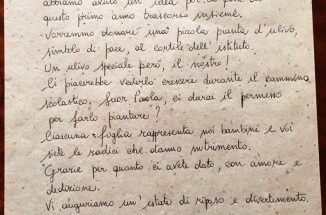 abbiamo avuto un'idea per la fine di
questo primo anno trascorso insieme.
Vorremmo donare una picola pianta d'ulivo,
simbolo di pace, al cortile dell'istituto.
Un ulivo speciale però, il nostro!
Ci piacerebbe vederlo crescere durante il cammino
scolastico. Suor Paola, ci darai il permesso
per farlo piantare?
Ciascuna foglia rappresenta noi bambini e voi
siete le radici che danno nutrimento.
Grazie per quanto ci avete dato, con amore e
dedizione.
Vi auguriamo un'estate di riposo e divertimento.